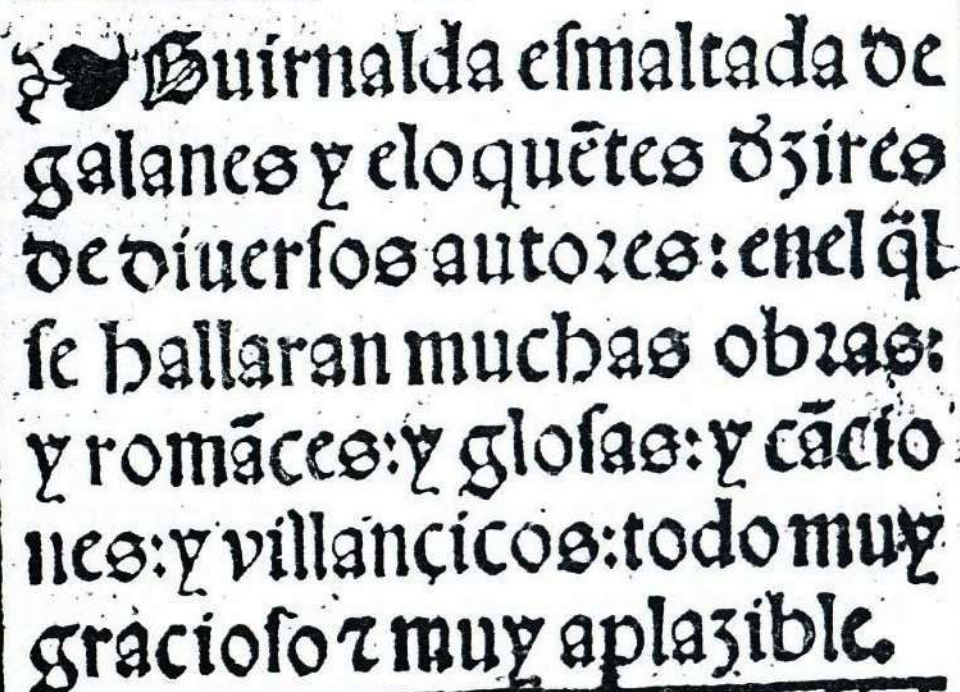 ❧ Guirnalda eſmaltada de
galanes y eloquẽtes d̕zires
de diuerſos autoꝛes: enel q̃l
ſe hallaran muchas obꝛas:
y romãces: y gloſas: y cãcio
nes: y villançicos: todo muy
gracioſo ⁊ muy aplazible.